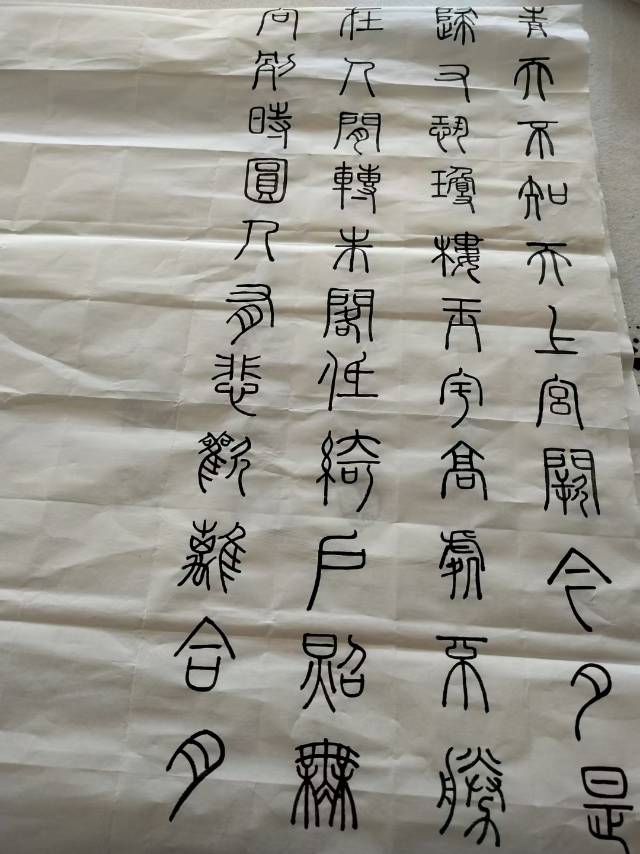 青天不知天上宮闕今夕是
歸又恐瓊樓玉宇高處不勝
在人間轉朱閣低綺戶照無
向別時圓人有悲歡離合月